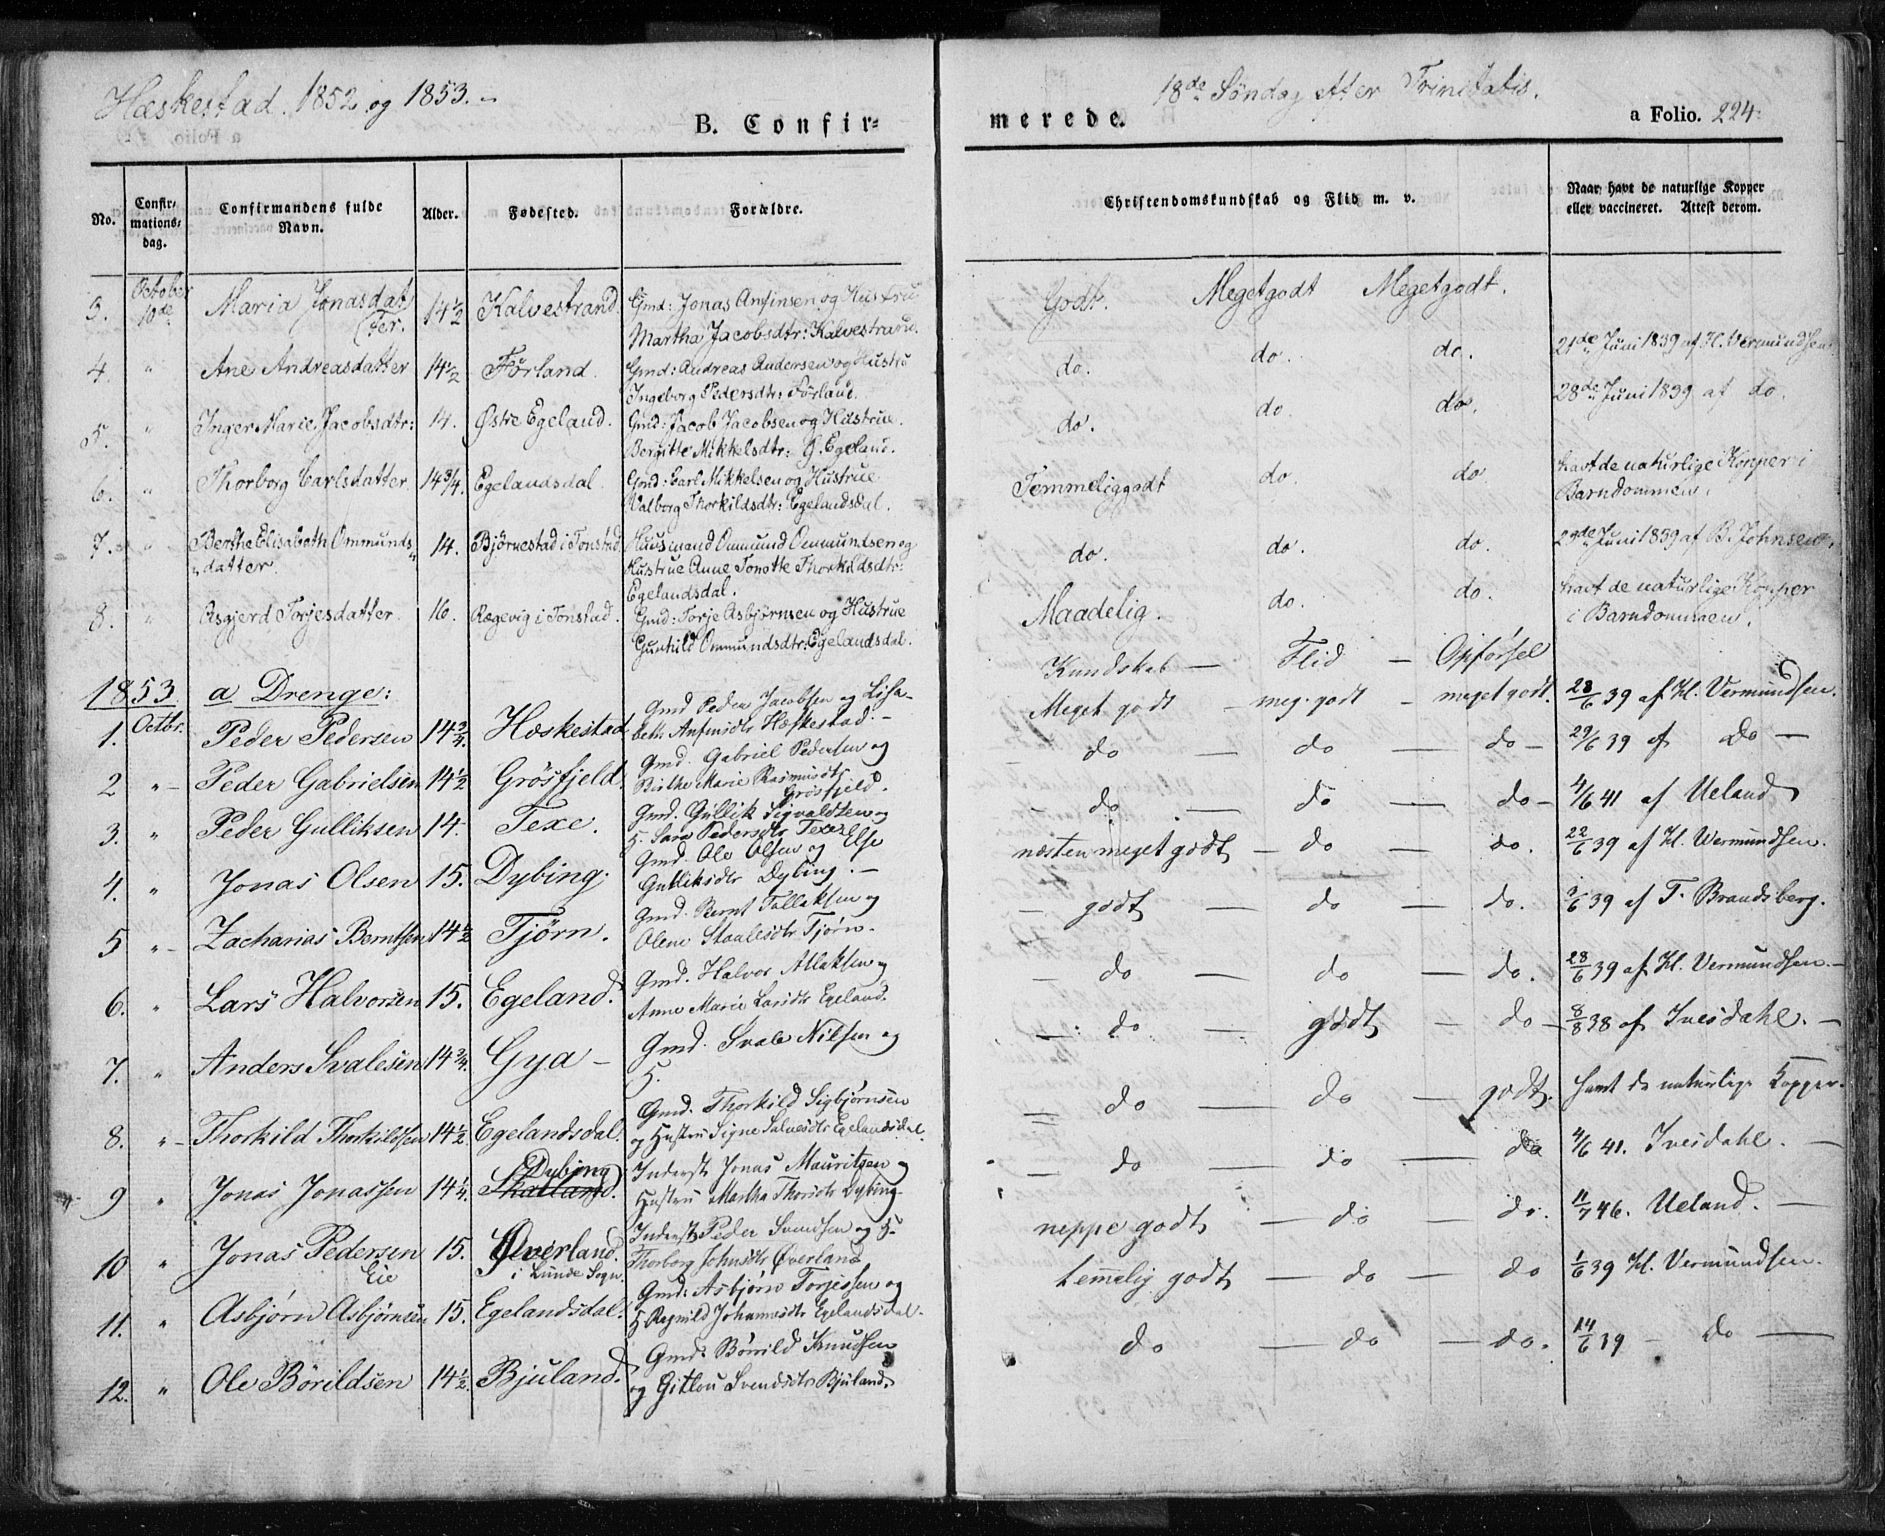 Hæskestad. 1852 og 1853.
18de Söndag efter Trinitatis.
B. Confir-
merede.
a Folio. 224.
No.
Confir-
mations-
dag.
Confirmandens fulde
Navn.
Alder.
Fødested.
Forældre.
Christendomskundskab og Flid m. v.
Naar havt de naturlige Kopper
eller vaccineret. Attest derom.
3. October 10de Maria Jonasdat
ter. 14 1/2 Kalvestrand. Gmd: Jonas Anfinsen og Hustru
Martha Jacobsdtr: Kalvestrand.
Godt. Megetgodt Megetgodt.
21de Juni 1839 af H. Vermundsen
4. " Ane Andreasdatter 14 1/2 Förland. Gmd: Andreas Andersen og Hustru
Ingeborg Pedersdtr: Förland.
do. do. do.
28de Juni 1839 af do.
5. " Inger Marie Jacobsdtr: 14. Østre Egeland. Gmd: Jacob Jacobsen og Hustrue.
Bergitte Mikkelsdtr: Ø. Egeland.
do. do. do.
6. " Thorborg Carlsdatter 14 3/4. Egelandsdal. Gmd: Carl Mikkelsen og Hustrue
Valborg Thorkildsdtr: Egelandsdal.
Temmeliggodt do. do.
havt de naturlige Kopper i
Barndommen.
7. " Berthe Elisabeth Ommunds-
datter. 14. Björnestad i Tonstad Huusmand Ommund Ommundsen og
Hustrue Anne Tonette Thorkildsdtr:
Egelandsdal.
do. do. do.
29de Juni 1839 af B. Johnsen.
8. " Asgjerd Torjesdatter. 16. Rægevig i Tonstad. Gmd: Torje Asbjörnsen og Hustrue
Gunhild Ommundsdtr: Egelandsdal.
Maadelig. do. do.
havt de naturlige Kopper
i Barndommen.
Kundskab — Flid — Opförsel
1853 a Drenge:
1. Octbr. Peder Pedersen 14 3/4. Hæskestad Gmd Peder Jacobsen og Lisa-
beth Anfinsdtr Hæskestad. –
Meget godt – meg. godt – meget godt. 28/6 39 af H. Vermundsen.
2 " Peder Gabrielsen 14 1/2 Grösfjeld Gmd. Gabriel Pedersen og
Birthe Marie Rasmusdtr
Grösfjeld.
do — do — do – 29/6 39 af Do —
3. " Peder Gulliksen 14. Texe. Gmd. Gullik Sigvaldsen og
H. Sara Pedersdtr Texe
– do — do — do – 4/6 41 af Ueland
4. " Jonas Olsen 15. Dybing. Gmd. Ole Olsen og Else
Gulliksdtr Dybing. –
næsten meget godt – do — do. 22/6 39 af H. Vermundsen.
5 " Zacharias Berntsen 14 1/2 Tjörn. Gmd. Bernt Tollaksen og
Olene Staalesdtr Tjørn.
– godt — do — do. 39 af T. Brandsberg.
6. " Lars Halvorsen 15. Egeland. Gmd. Halvor Atlaksen og
Anne Marie Larsdtr Egeland.
– do — do — do. 28/6 39 af H. Vermundsen. –
7. " Anders Svalesen 14 3/4. Gya – Gmd. Svale Nilsen og
H.
– do — godt – do – 8/8 38 af Ivesdahl. –
8. " Thorkild Thorkildsen 14 1/2 Egelandsdal. Gmd. Thorkild Sigbjørnsen
og Hustru Signe Salvesdtr Egelandsdal.
– do — do — godt. havt de naturlige Kopper.
9 " Jonas Jonassen 14 1/4. Dybing
Skatland. Inderst Jonas Mauritzen og
Hustru Martha Thorsdtr Dybing
– do — do — do 4/6 41. Ivesdahl. –
10 " Jonas Pedersen
Eie 15. Øverland.
i Lunde Sogn. Inderst Peder Svendsen og H.
Thorborg Johnsdtr Øverland
neppe godt — do — do. 11/7 46. Ueland. –
11. " Asbjörn Asbjörnsen 15. Egelandsdal. Gmd: Asbjørn Torjesen og
H Ragnild Johannesdtr Egelandsdal.
temmelig godt — do — do 1/6 39 H. Vermundsen.
12. " Ole Börildsen 14 1/2. Bjuland. Gmd. Börild Knudsen
og Gitlou Svendsdtr Bjuland.
do — do — do. 14/6 39 – Do —